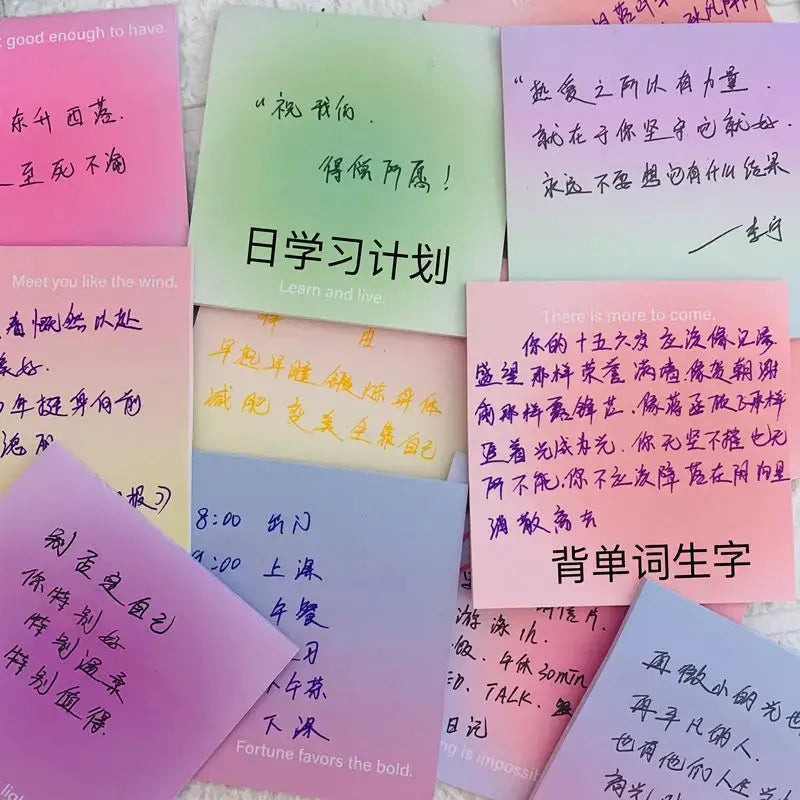 good enough to have.
东升西落.
至死不渝
“祝我们.
得偿所愿!
日学习计划
Learn and live.
“热爱之所以有力量.
就在于你坚守它就好.
永远不要想它有什么结果
——李宁
Meet you like the wind.
着慨然以赴
年挺身向前
早起早睡 锻炼身体
减肥 变美 全靠自己
There is more to come.
你的十五六岁应该像
盛望那样荣誉满墙.像贺朝谢
俞那样露锋芒.像蒋丞顾飞那样
追着光成为光.你无坚不摧也无
所不能.你不应该降落在阴沟里
消散离去
背单词生字
别否定自己
你特别好
特别温柔
特别值得.
8:00 出门
9:00 上课
午餐
下午茶
下课
Fortune favors the bold.
游泳1h.
饭. 午休30min
TALK.
日记
ng is impossib
再微小的光也
再平凡的人.
也有他们人生